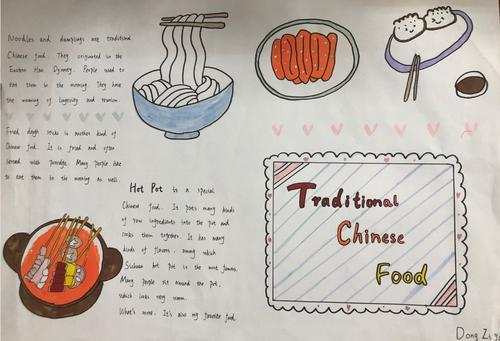 Noodles and dumplings are traditional
Chinese food. They originated in the
Eastern Han Dynasty. People used to
eat them in the morning. They have
the meaning of longevity and reunion.
Fried dough sticks is another kind of
Chinese food. It is fried and often
served with porridge. Many people like
to eat them in the morning as well.
Hot Pot is a special
Chinese food. It puts many kinds
of raw ingredients into the pot and
cooks them together. It has many
kinds of flavors, among which
Sichuan hot pot is the most famous.
Many people sit around the pot,
which looks very warm.
What's more. It's also my favorite food.
Traditional
Chinese
Food
Dong Zi